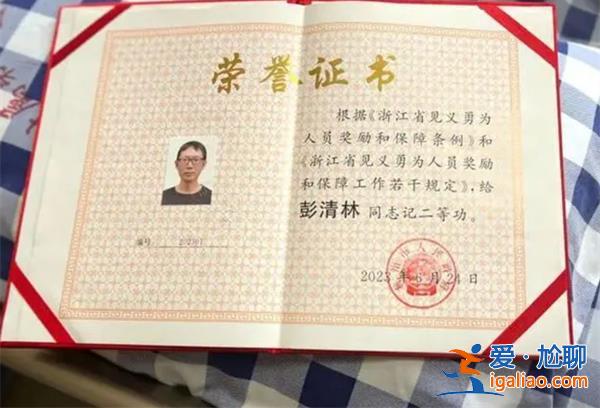 荣誉证书
根据《浙江省见义勇为
人员奖励和保障条例》和
《浙江省见义勇为人员奖励
和保障工作若干规定》,给
彭清林 同志记二等功。
编号
2023 年 6 月 24 日
爱·尬聊
igaliao.com